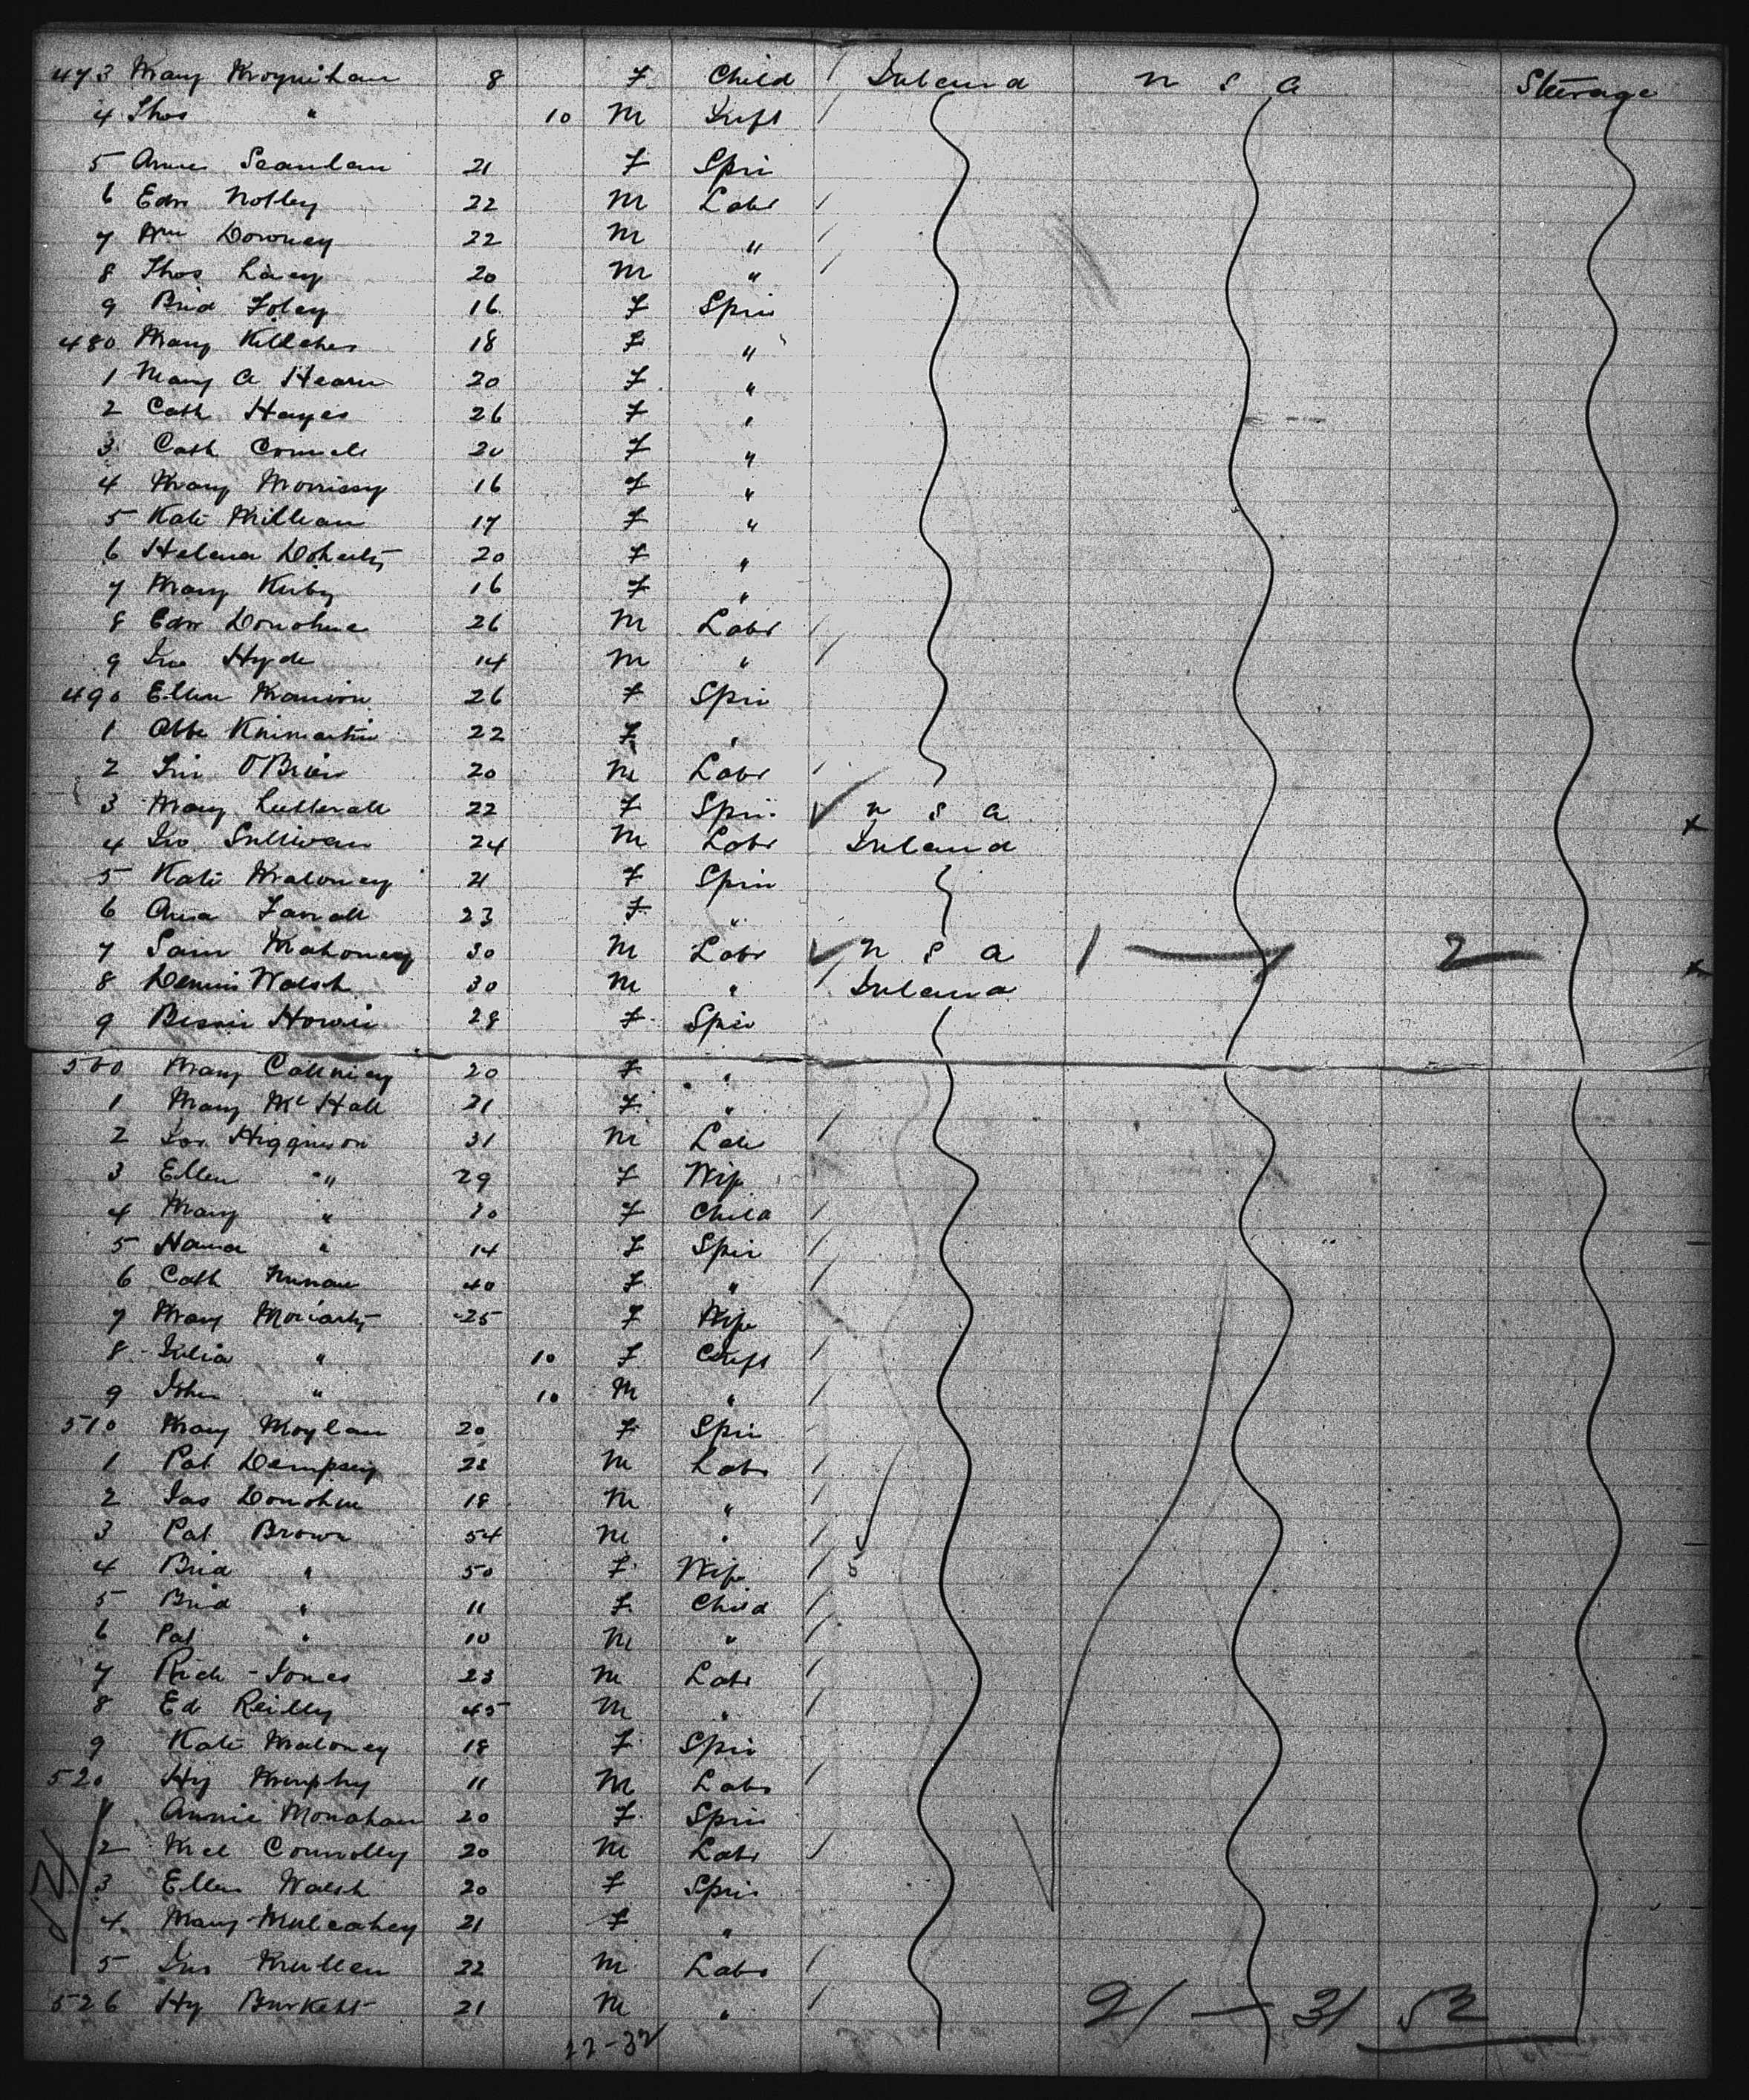 473 Mary Moynihan 8 F Child Ireland U S A Steerage
4 Thos " 10 M Inft
5 Annie Scanlan 21 F Spin
6 Edw Nolley 22 M Labr
7 Wm Downey 22 M "
8 Thos Lacy 20 M "
9 Brid Foley 16 F Spin
480 Mary Killeher 18 F "
1 Mary A Hearn 20 F "
2 Cath Hayes 26 F "
3 Cath Connell 20 F "
4 Mary Morrissy 16 F "
5 Kate Millean 17 F "
6 Helena Doherty 20 F "
7 Mary Kirby 16 F "
8 Edw Donohue 26 M Labr
9 Jno Hyde 14 M "
490 Ellen Mannion 26 F Spin
1 Abbe Kinmartin 22 F "
2 Jno O'Brien 20 M Labr
3 Mary Lutterall 22 F Spin U S A x
4 Jno Sullivan 24 M Labr Ireland
5 Kate Maloney 21 F Spin
6 Ania Farrall 23 F "
7 Sam Mahoney 30 M Labr U S A 1 — 2 — x
8 Dennis Walsh 30 M " Ireland
9 Bessie Howie 28 F Spin
500 Mary Callniey 20 F "
1 Mary McHall 21 F "
2 Jos Higginson 31 M Labr
3 Ellen " 29 F Wife
4 Mary " 10 F Child
5 Hanna " 14 F Spin
6 Cath Nunan 40 F "
7 Mary Moriarty 25 F Wife
8 Julia " 10 F Inft
9 John " 10 M "
510 Mary Moylan 20 F Spin
1 Pat Dempsey 28 M Labr
2 Jas Donohue 18 M "
3 Pat Brown 54 M "
4 Brid " 50 F Wife 5
5 Brid " 11 F Child
6 Pat " 10 M "
7 Rich Jones 23 M Labr
8 Ed Reilly 45 M "
9 Kate Maloney 18 F Spin
520 Hy Murphy 11 M Labr
1 Annie Monahan 20 F Spin
2 Mcl Connolly 20 M Labr
3 Ellen Walsh 20 F Spin
4 Mary Mulcahey 21 F "
5 Jno Mullen 22 M Labr
526 Hy Burkett 21 M " 21 — 31 52
22-32